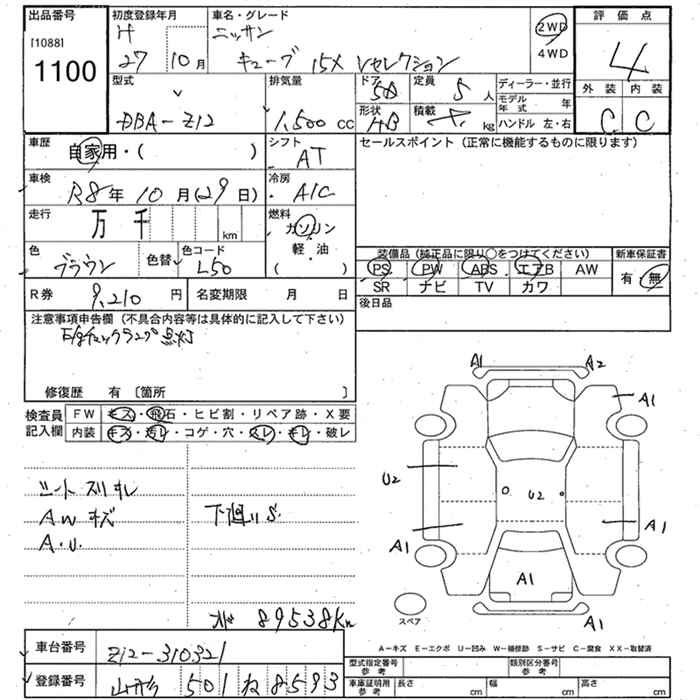 出品番号
[1088]
1100
初度登録年月
H
27 10月
車名・グレード
ニッサン
キューブ 15X Vセレクション
2WD
4WD
評価点
4
外装 内装
C C
型式
DBA-Z12
排気量
1,500 cc
ドア 5D
定員 5人
形状 HB
積載 kg
ディーラー・並行
モデル年式 年
ハンドル 左・右
車歴
自家用・( )
シフト
AT
セールスポイント (正常に機能するものに限ります)
車検
R8年 10月(29日)
冷房
A/C
走行
万 千 km
燃料
ガソリン
軽・油
( )
色
ブラウン
色替
色コード
L50
装備品 (純正品に限り○をつけてください)
PS PW ABS エアB AW
SR ナビ TV カワ
新車保証書
有・無
後日品
R券
9,210 円
名変期限 月 日
注意事項申告欄 (不具合内容等は具体的に記入して下さい)
チェックランプ点灯
修復歴 有 〔箇所 〕
検査員記入欄
FW キズ・飛石・ヒビ割・リペア跡・X要
内装 キズ・汚レ・コゲ・穴・スレ・キレ・破レ
シート スリキレ
AW キズ
A.U.
下廻りS.
89538Km
A1 A2
A1
U2
U2
A1
A1
A1
A1
スペア
A-キズ E-エクボ U-凹み W-補修跡 S-サビ C-腐食 XX-取替済
車台番号
Z12-310321
登録番号
山形 501 ね 8593
型式指定番号
参考
類別区分番号
参考
車庫証明用
参考
長さ cm
幅 cm
高さ cm